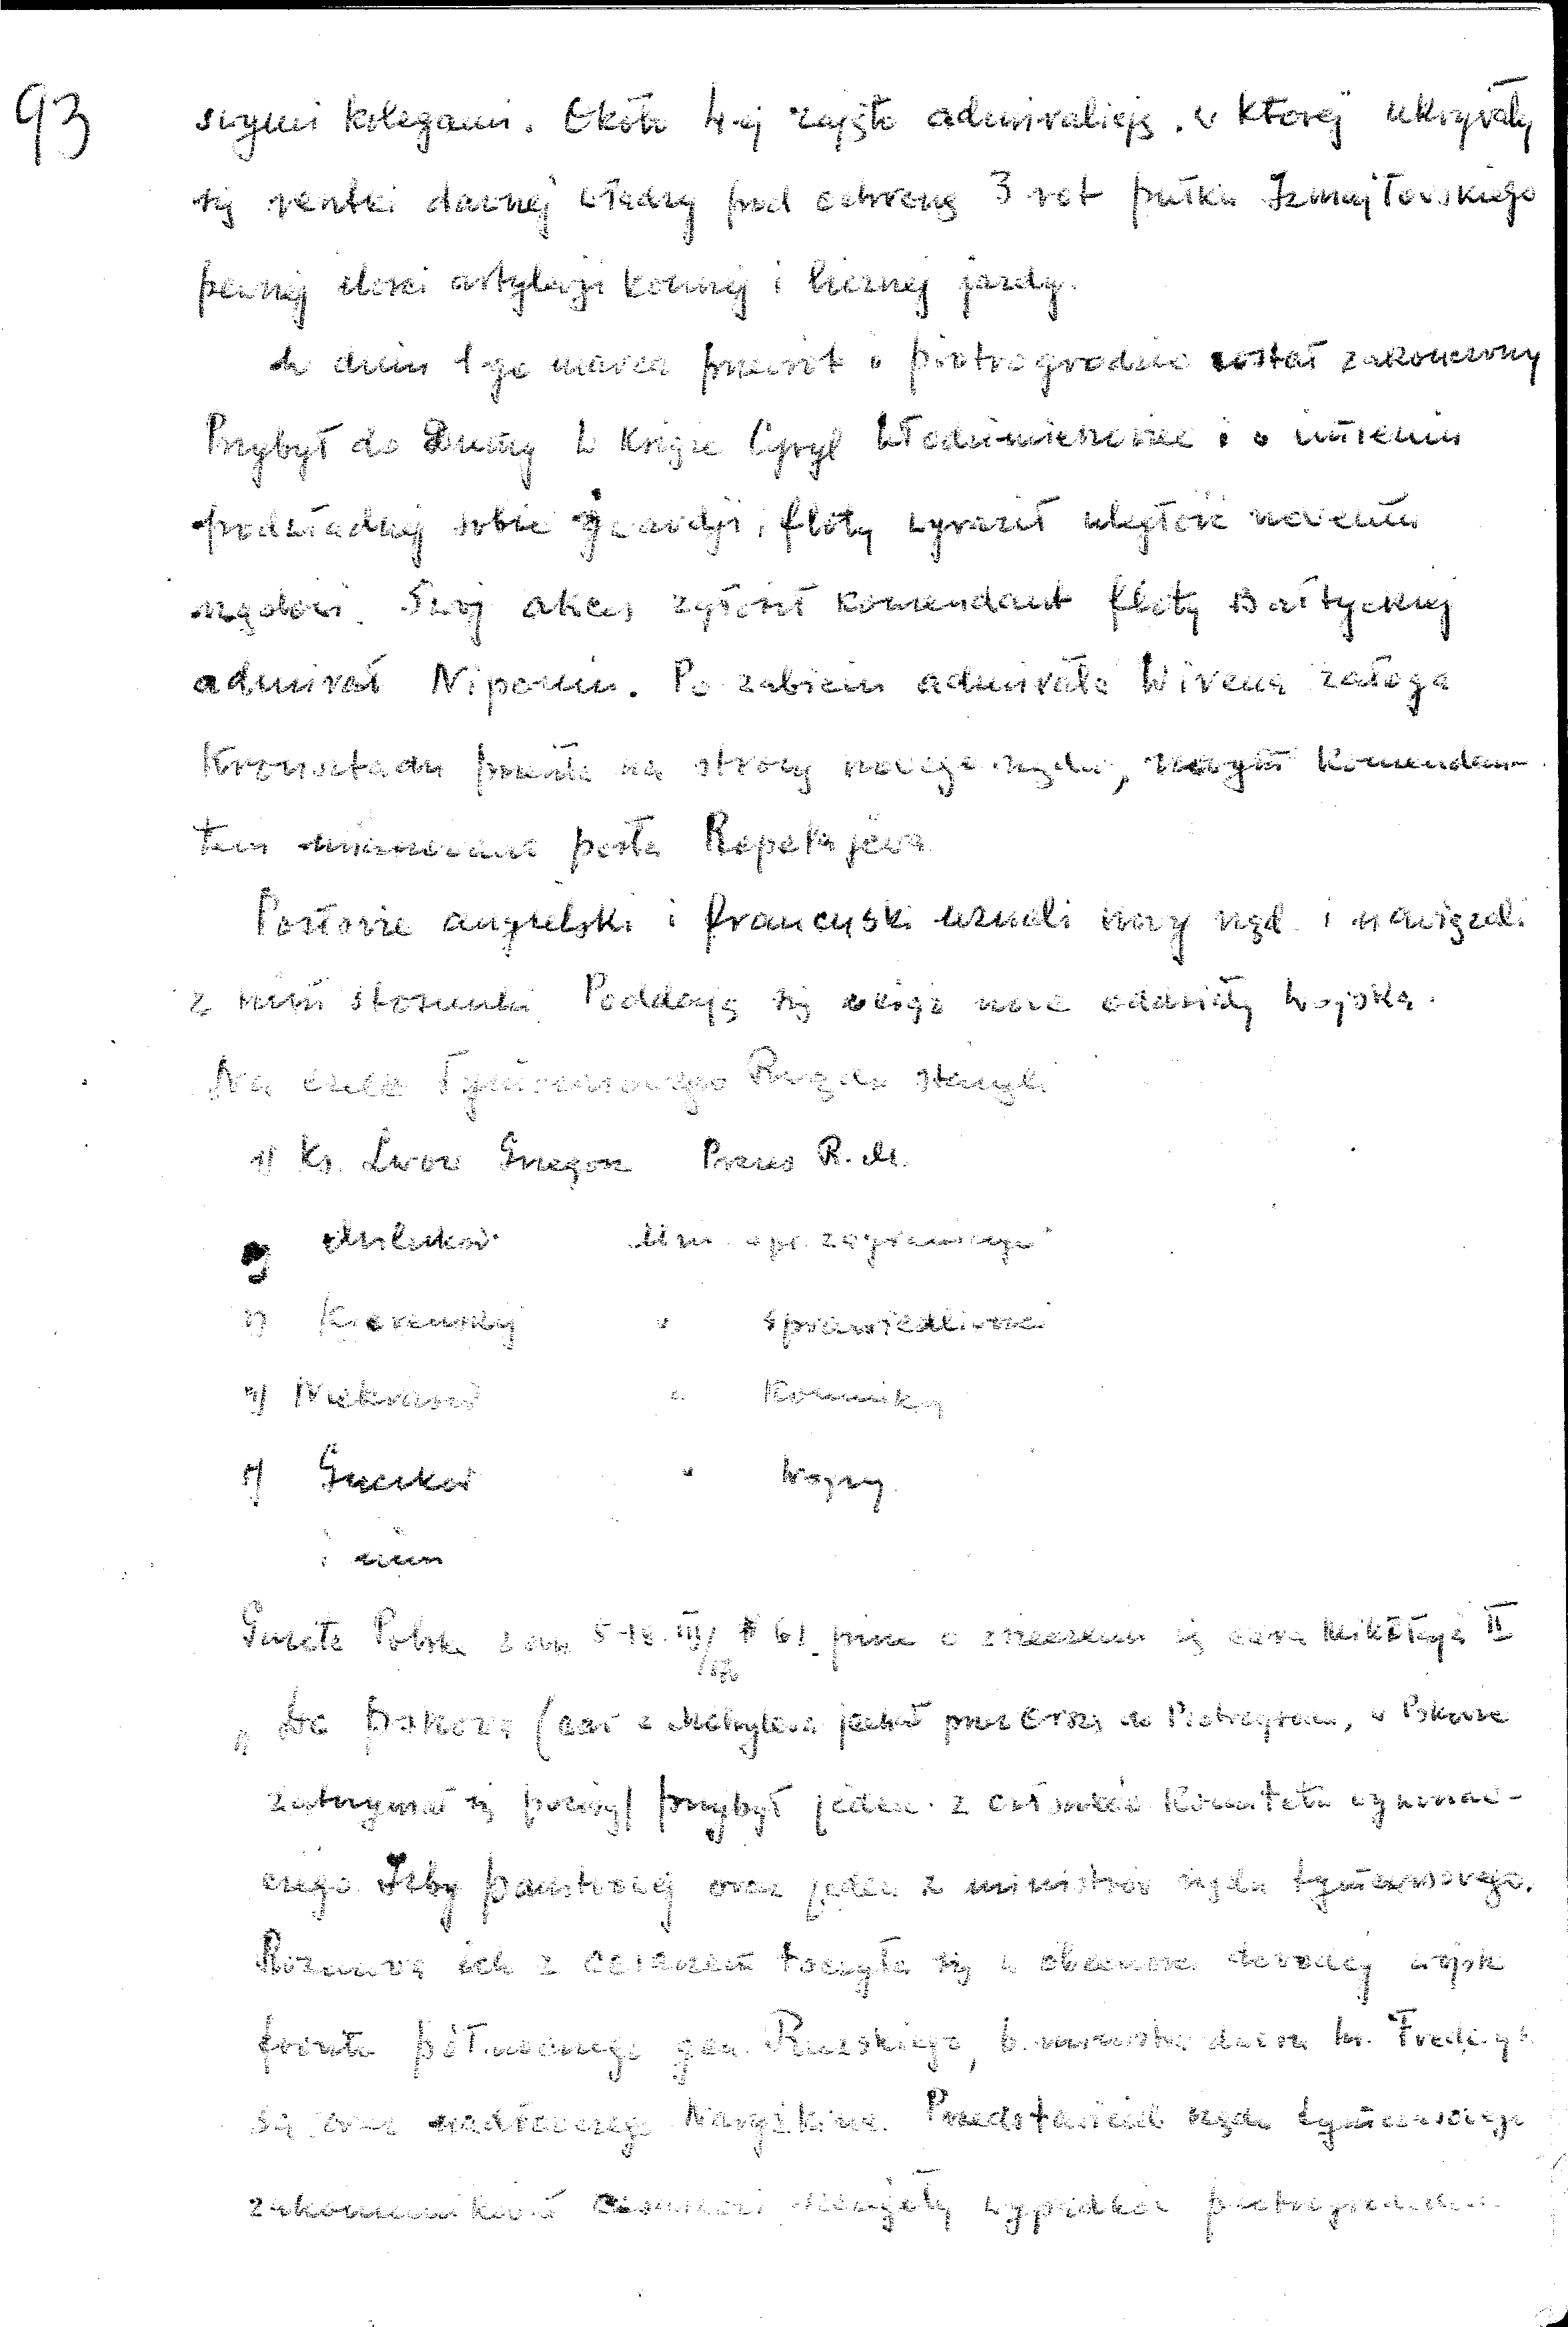 93
swymi kolegami. Około 4-ej zajęto admiralicję, w której ukrywały
się resztki dawnej władzy pod ochroną 3 rot pułku Izmajłowskiego
pewnej ilości artylerji konnej i licznej jazdy.
W dniu 1go marca przewrót w piotrogrodzie został zakończony
Przybył do Dumy W Książe Cyryl Włodzimierzowicz i w imieniu
podwładnej sobie gwardji, floty wyraził uległość nowemu
rządowi. Swój akces zgłosił komendant floty Bałtyckiej
admirał Nipenin. Po zabiciu admirała Wirena załoga
Kronsztadu przeszła na stronę nowego rządu, nowym komendan-
tem mianowano posła Repekajewa
Posłowie angielski i francuski uznali nowy rząd i nawiązali
z nim stosunki Poddają się wciąż nowe oddziały wojska.
Na czele Tymczasowego Rządu stanęli
1) Ks. Lwow Grzegorz Prezes R. M.
2) Milukow Min. spr. zagranicznych
3) Kierenskij " sprawiedliwości
4) Niekrasow " Komunik.
5) Guczkow " Wojny
i inni
Gazeta Polska z dn 5-18.III/ # 61 pisze o zrzeczeniu się cara Mikołaja II
„Do Pskowa (car z Mohylewa jechał przez Orszę do Piotrogrodu, w Pskowie
zatrzymał się pociąg) przybył jeden z członków Komitetu wykonaw-
czego Izby państwowej oraz jeden z ministrów rządu tymczasowego.
Rozmowa ich z cesarzem toczyła się w obecności dowódcy wojsk
frontu północnego gen. Ruzskiego, b. ministra dworu hr. Frederyk
sa oraz Naryszkina. Przedstawiciel rządu tymczasowego
zakomunikował Cesarzowi szczegóły wypadków piotrogrodzkich